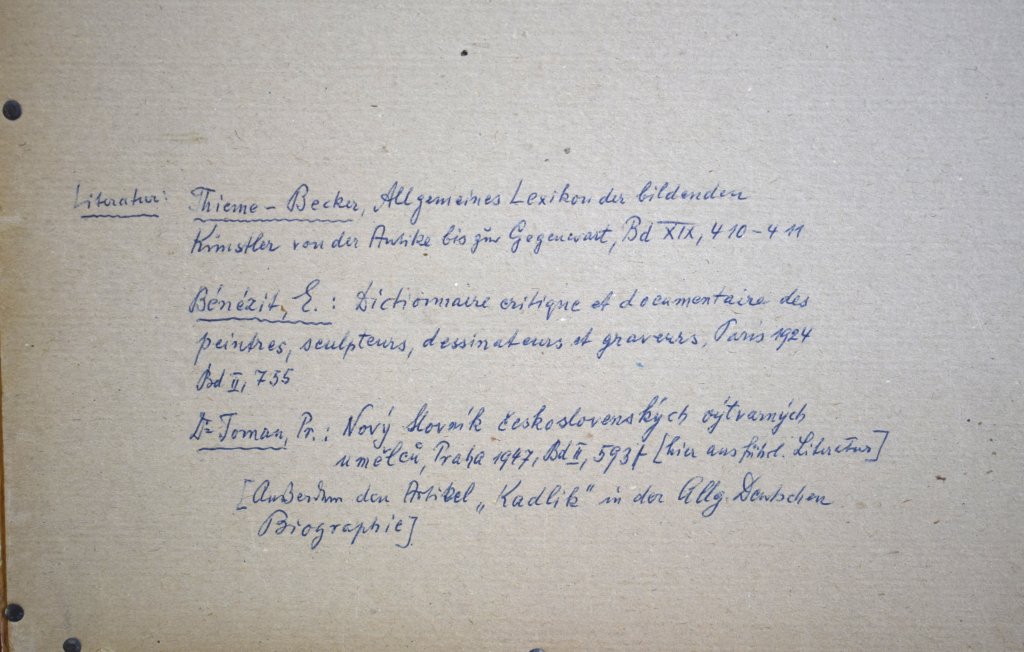 Literatur: Thieme – Becker, Allgemeines Lexikon der bildenden
Künstler von der Antike bis zur Gegenwart, Bd XIX, 410–411
Bénézit, E.: Dictionnaire critique et documentaire des
peintres, sculpteurs, dessinateurs et graveurs, Paris 1924
Bd II, 755
Dr Toman, Pr.: Nový Slovník československých výtvarných
umělců, Praha 1947, Bd II, 593f [hier ausführl. Literatur]
[Außerdem den Artikel „Kadlik“ in der Allg. Deutschen
Biographie]